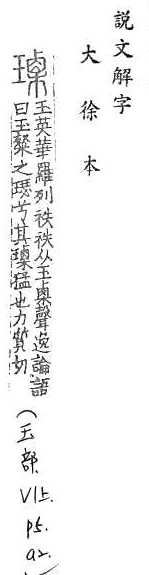 説文解字
大徐本
瑮
玉英華羅列秩秩从玉㮚聲逸論語
曰玉粲之璱兮其瑮猛也力質切
(玉部 V1上. p5. a2.